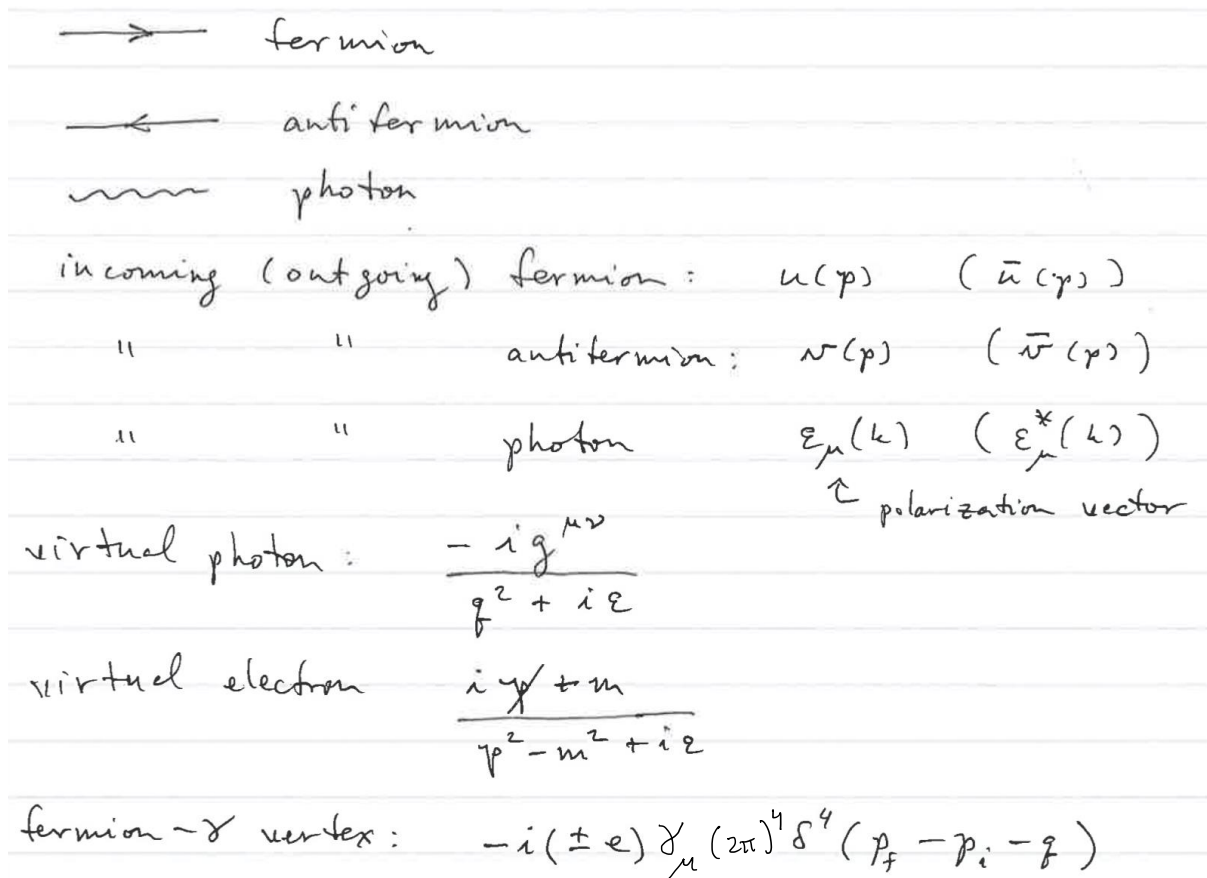 fermion
anti fermion
photon
incoming (outgoing) fermion: u(p) (ū(p))
" " antifermion: v(p) (v̄(p))
" " photon εμ(k) (ε*μ(k))
↑ polarization vector
virtual photon: −ig^μν / q² + iε
virtual electron ip̸ + m / p² − m² + iε
fermion-γ vertex: −i(±e)γμ(2π)⁴δ⁴(p_f − p_i − q)